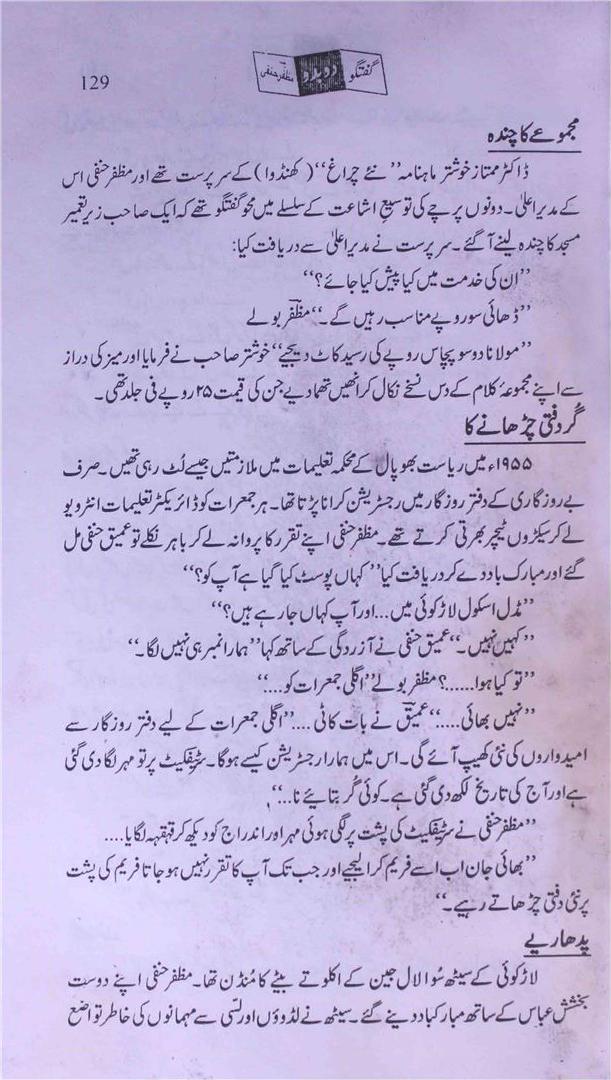 129
گفتگو دوبدو مظفر حنفی
مجموعے کا چندہ
ڈاکٹر ممتاز خوشتر ماہنامہ ”نئے چراغ“ (کھنڈوا) کے سرپرست تھے اور مظفر حنفی اس
کے مدیر اعلیٰ۔ دونوں پرچے کی توسیعِ اشاعت کے سلسلے میں محو گفتگو تھے کہ ایک صاحب زیر تعمیر
مسجد کا چندہ لینے آگئے۔ سرپرست نے مدیر اعلیٰ سے دریافت کیا:
”ان کی خدمت میں کیا پیش کیا جائے؟“
”ڈھائی سو روپے مناسب رہیں گے۔“ مظفر بولے
”مولانا دو سو پچاس روپے کی رسید کاٹ دیجیے“ خوشتر صاحب نے فرمایا اور میز کی دراز
سے اپنے مجموعۂ کلام کے دس نسخے نکال کر انھیں تھما دیے جن کی قیمت ۲۵ روپے فی جلد تھی۔
گُر دفتی چڑھانے کا
۱۹۵۵ء میں ریاست بھوپال کے محکمہ تعلیمات میں ملازمتیں جیسے لُٹ رہی تھیں۔ صرف
بے روزگاری کے دفتر روزگار میں رجسٹریشن کرانا پڑتا تھا۔ ہر جمعرات کو ڈائریکٹر تعلیمات انٹرویو
لے کر سیکڑوں ٹیچر بھرتی کرتے تھے۔ مظفر حنفی اپنے تقرر کا پروانہ لے کر باہر نکلے تو عمیق حنفی مل
گئے اور مبارک باد دے کر دریافت کیا ”کہاں پوسٹ کیا گیا ہے آپ کو؟“
”مڈل اسکول لاڑکوئی میں... اور آپ کہاں جا رہے ہیں؟“
”کہیں نہیں۔“ عمیق حنفی نے آزردگی کے ساتھ کہا ”ہمارا نمبر ہی نہیں لگا۔“
”تو کیا ہوا......؟ مظفر بولے ”اگلی جمعرات کو....“
”نہیں بھائی....“ عمیق نے بات کاٹی .... ”اگلی جمعرات کے لیے دفتر روزگار سے
امیدواروں کی نئی کھیپ آئے گی۔ اس میں ہمارا رجسٹریشن کیسے ہوگا۔ سٹیفکیٹ پر تو مہر لگا دی گئی
ہے اور آج کی تاریخ لکھ دی گئی ہے۔ کوئی گُر بتایئے نا...“
”مظفر حنفی نے سٹیفکیٹ کی پشت پر لگی ہوئی مہر اور اندراج کو دیکھ کر قہقہہ لگایا....
”بھائی جان اب اسے فریم کرا لیجیے اور جب تک آپ کا تقرر نہیں ہو جاتا فریم کی پشت
پر نئی دفتی چڑھاتے رہیے۔“
پدھاریے
لاڑکوئی کے سیٹھ سُوا لال جین کے اکلوتے بیٹے کا مُنڈن تھا۔ مظفر حنفی اپنے دوست
بخشش عباس کے ساتھ مبارکباد دینے گئے۔ سیٹھ نے لڈوؤں اور لسّی سے مہمانوں کی خاطر تواضع